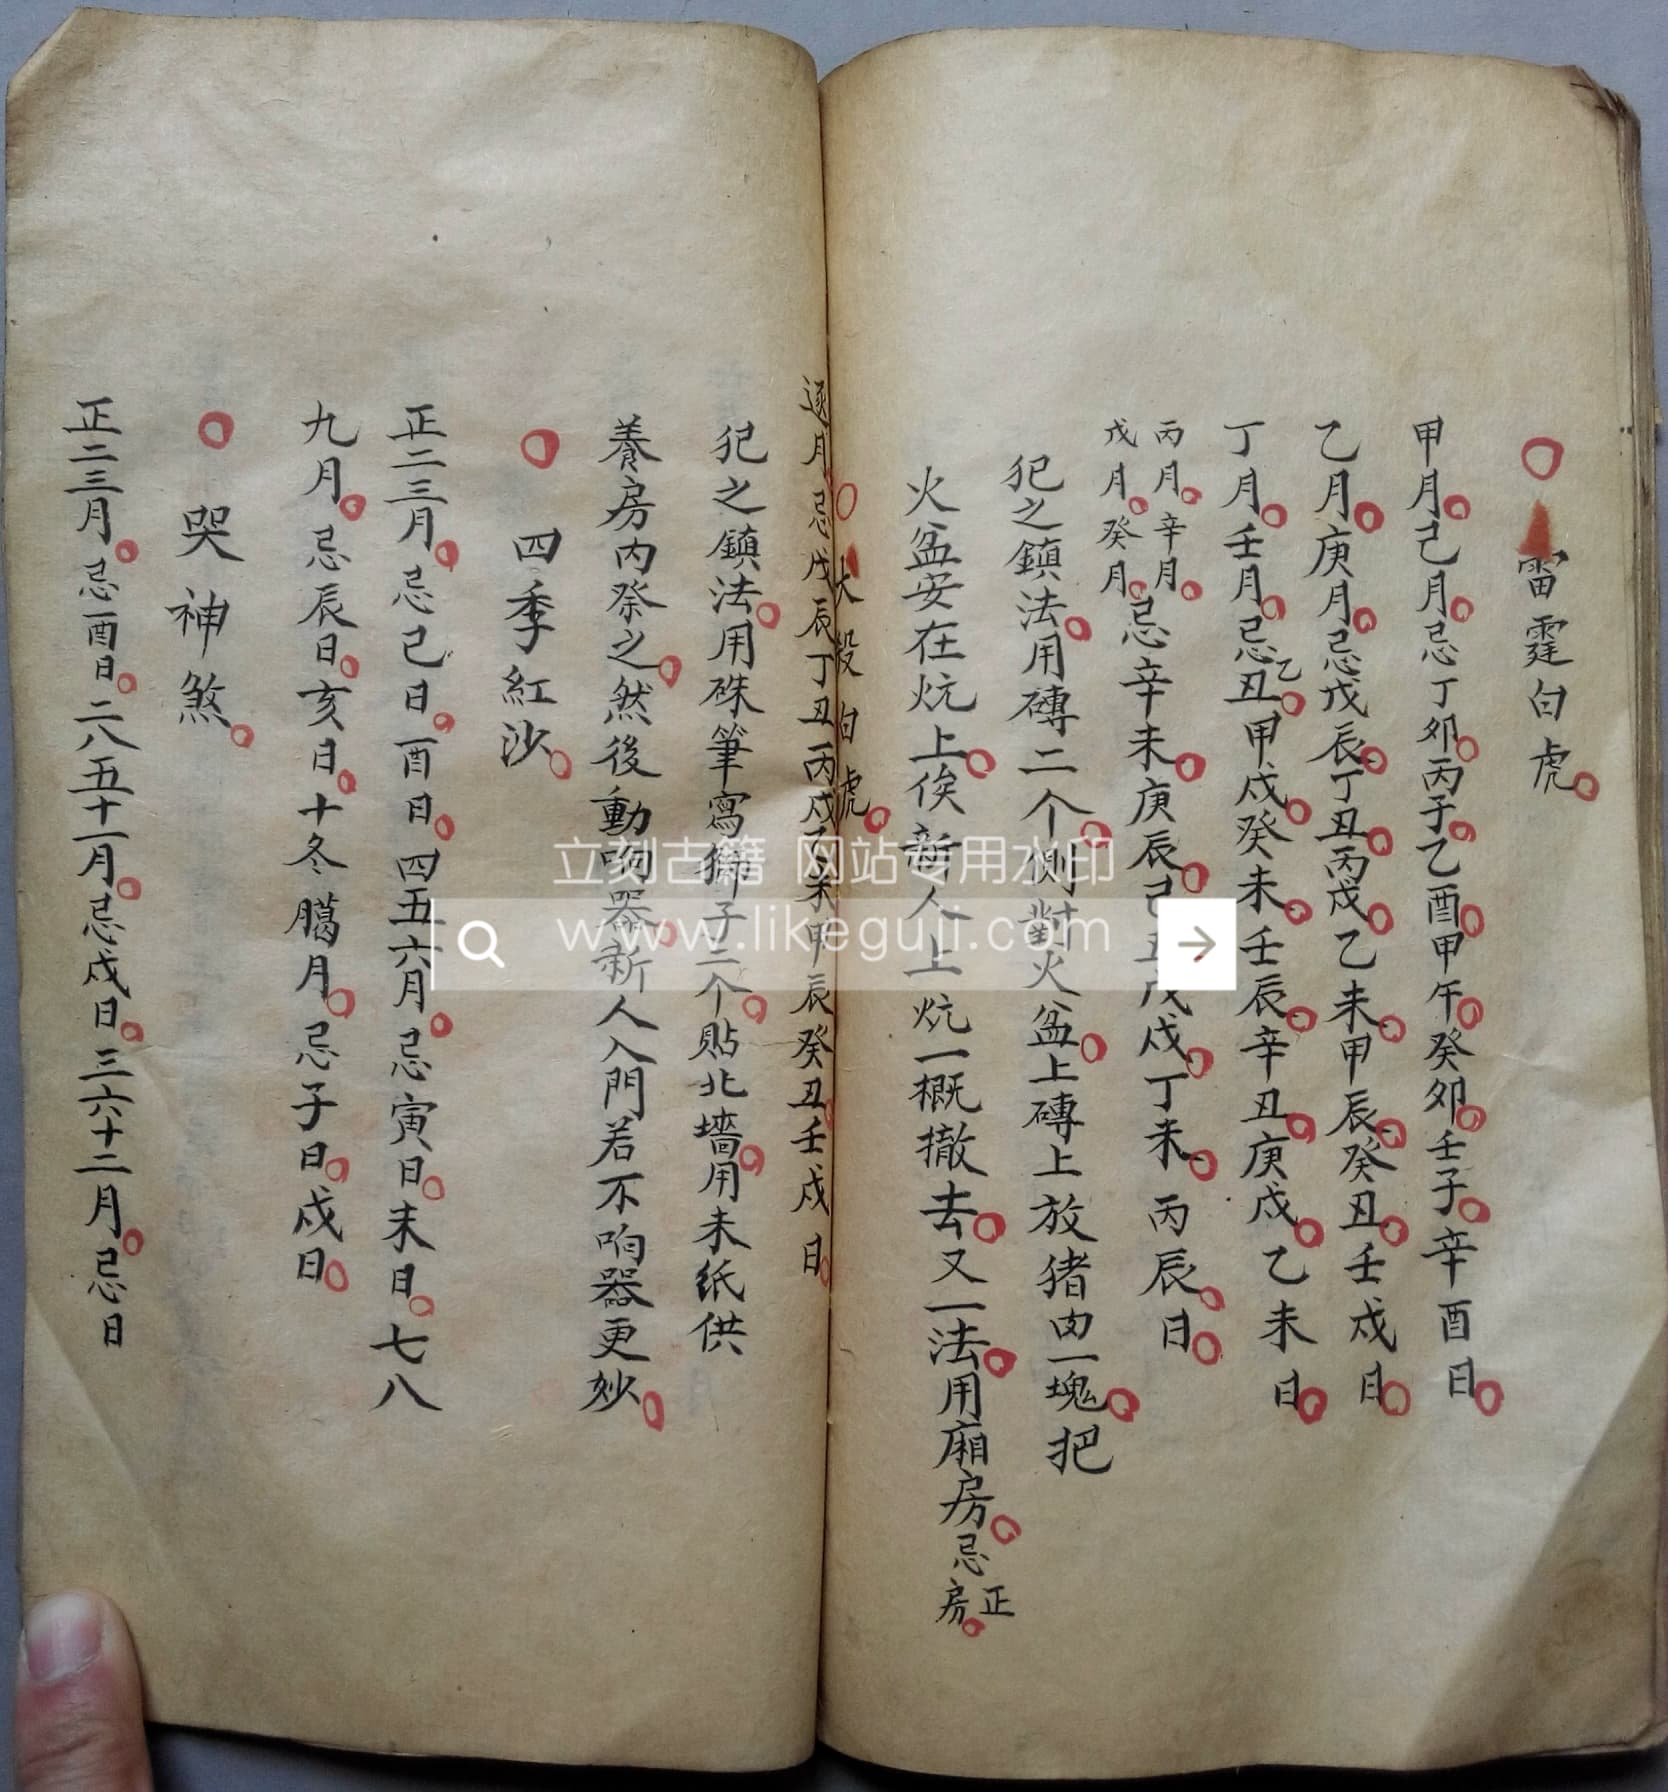 雷霆白虎
甲月己月忌丁卯丙子乙酉甲午癸卯壬子辛酉日
乙月庚月忌戊辰丁丑丙戌乙未甲辰癸丑壬戌日
丁月壬月忌乙丑甲戌癸未壬辰辛丑庚戌乙未日
丙月辛月
戊月癸月
忌辛未庚辰己丑戊戌丁未丙辰日
犯之鎮法用磚二个側對火盆上磚上放猪肉一塊把
火盆安在炕上俟新人上炕一概撤去又一法用廂房忌正房
大殺白虎
逐月忌戊辰丁丑丙戌乙未甲辰癸丑壬戌日
犯之鎮法用硃筆寫獅子二个貼北墻用未紙供
養房内祭之然後動响器新人入門若不响器更妙
四季紅沙
正二三月忌己日酉日四五六月忌寅日未日七八
九月忌辰日亥日十冬臈月忌子日戌日
哭神煞
正二三月忌酉日二八五十一月忌戌日三六十二月忌日
立刻古籍 网站专用水印
www.likeguji.com